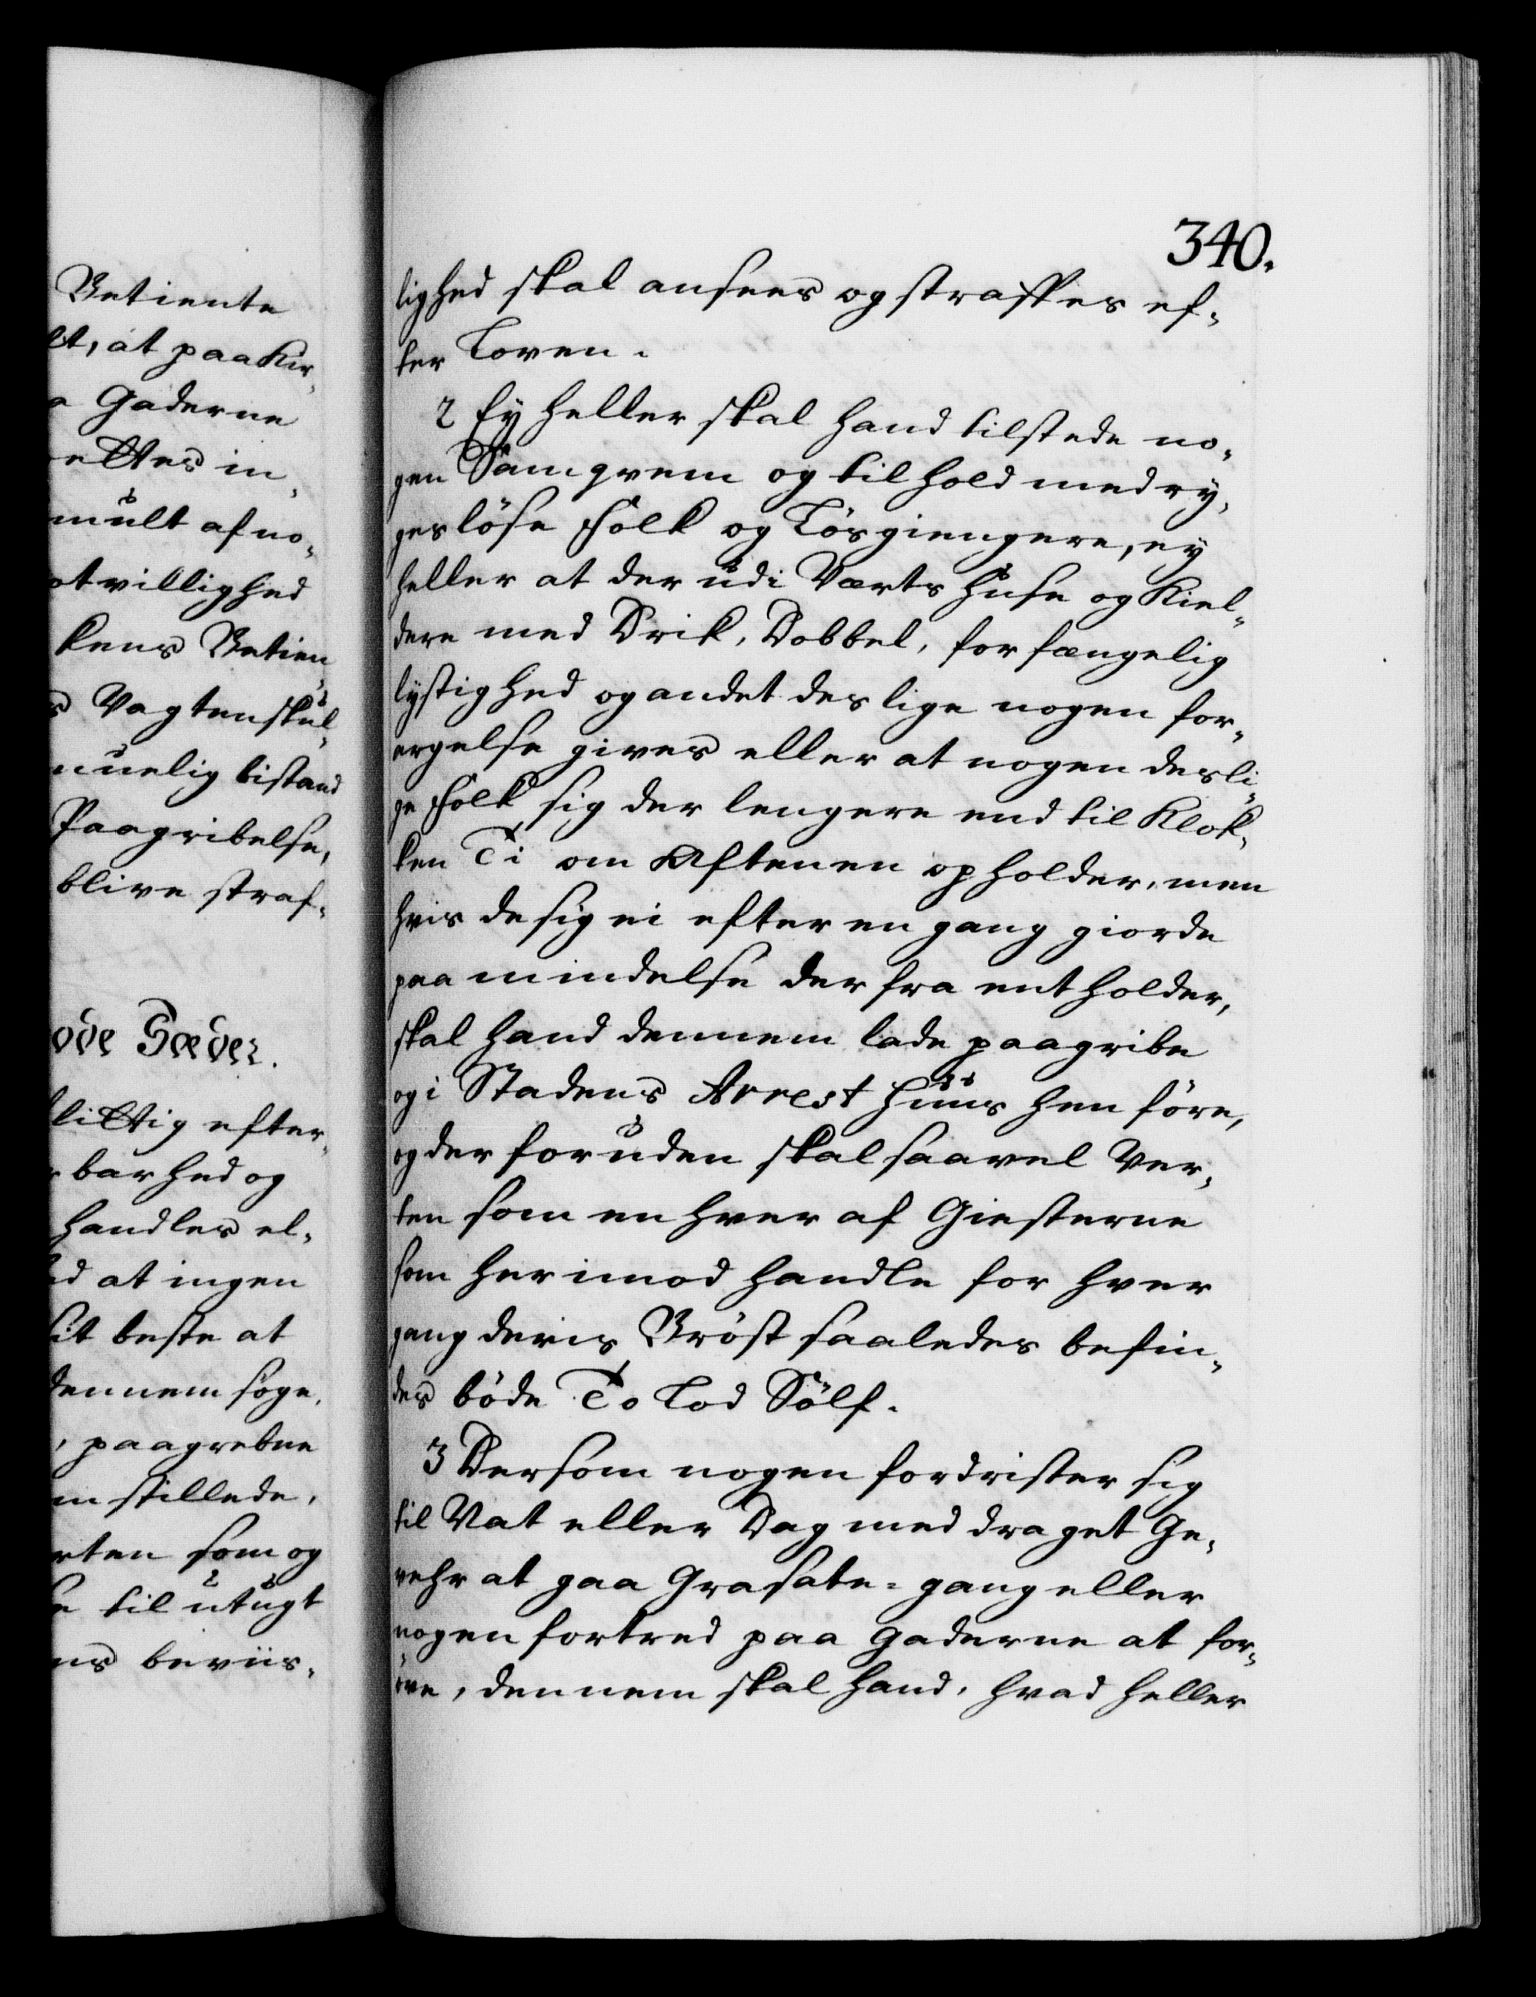 Betiente
et, at paa Kir-
a Gaderne
rettes in-
mult af no-
otvillighed
kens Betien-
s Vagten skul-
muelig bistand
Paagribelse,
blive straf-
Gode Sæder.
flittig efter-
rbarhed og
handles el-
ed at ingen
sit beste at
dennem søge,
, paagrebne
m stillede,
rten som og
e til utugt
ns beviis-
340.
lighed skal ansees og straffes ef-
ter Loven.
2 Ey heller skal hand tilstede no-
gen Samqvem og tilhold med ry-
gesløse Folk og Løsgiengere, ey
heller at der udi Værtshuse og Kiel-
dere med Drik, Dobbel, forfængelig
lystighed og andet deslige nogen for-
ergelse gives eller at nogen desli-
ge Folk sig der lengere end til Klok-
ken Ti om Aftenen opholder, men
hvis de sig ei efter en gang giorde
paamindelse derfra entholder,
skal hand dennem lade paagribe
og i Stadens Arrest Huus hen føre,
og der foruden skal saavel Ver-
ten som en hver af Giesterne
som herimod handle for hver
gang deris Brøst saaledes befin-
des bøde To Lod Sølf.
3 Dersom nogen fordrister sig
til Nat eller Dag med draget Ge-
vehr at gaa Grasate-gang eller
nogen fortred paa Gaderne at for-
øve, dennem skal hand, hvad heller